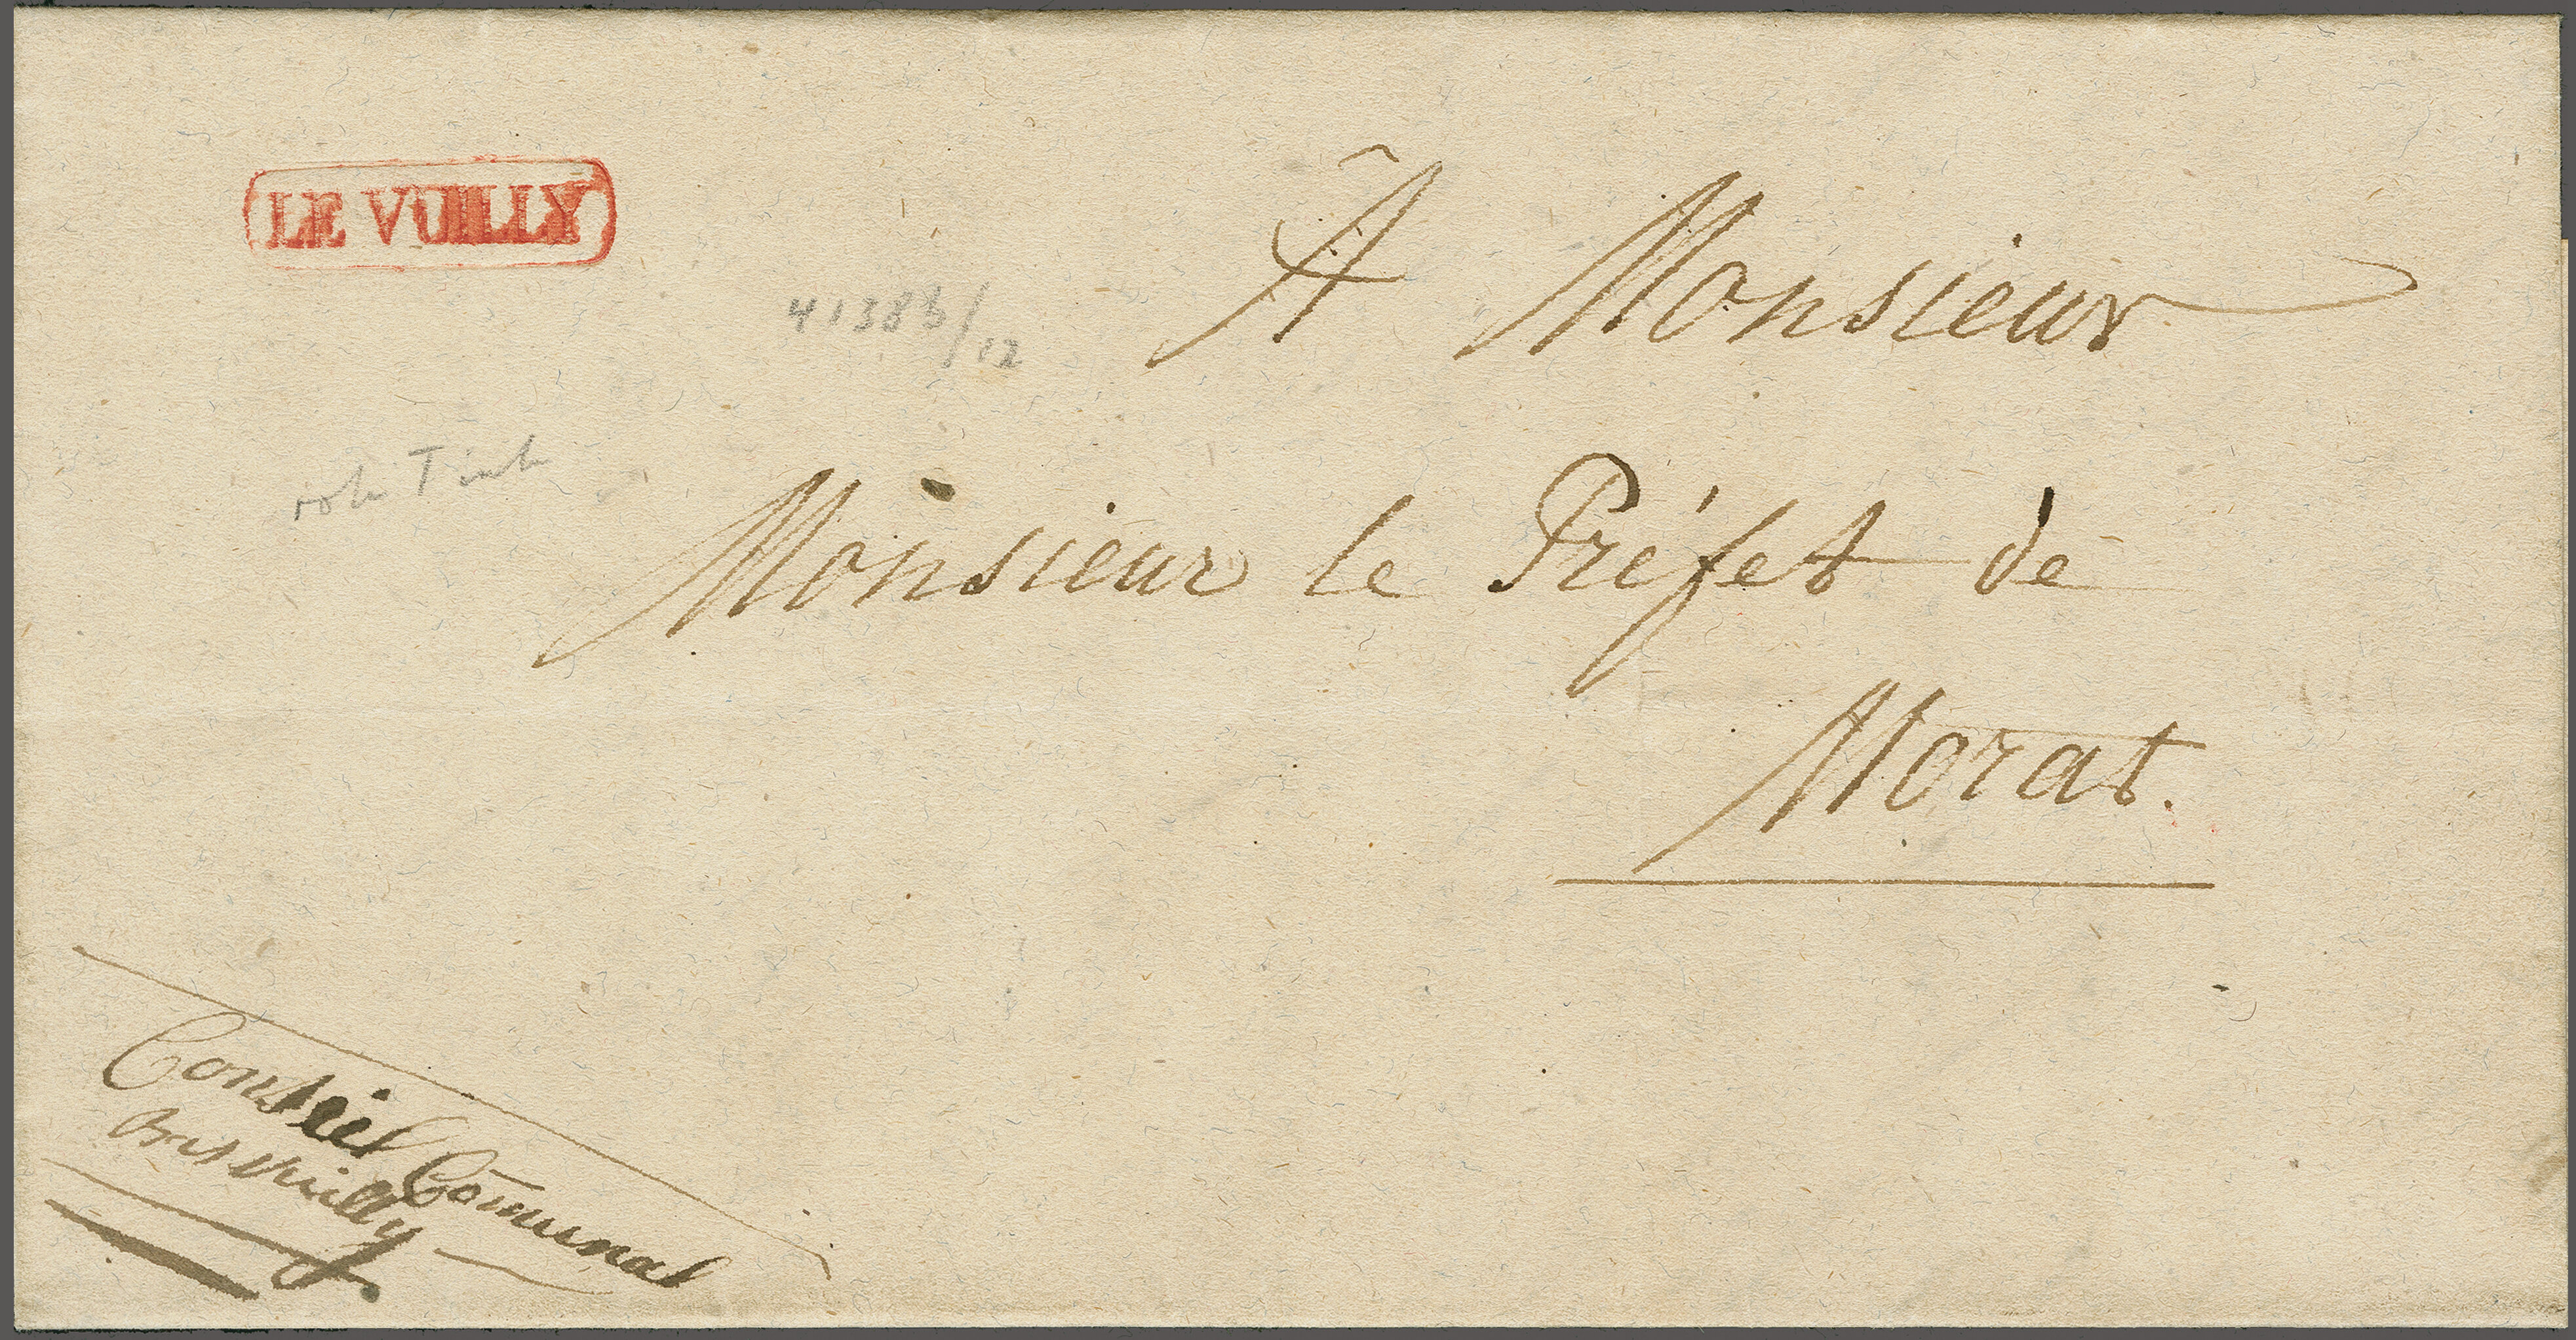 LE VUILLY
À Monsieur
4138b/12
Monsieur le Préfet de
Morat.
Conseil Communal
Bas Vuilly